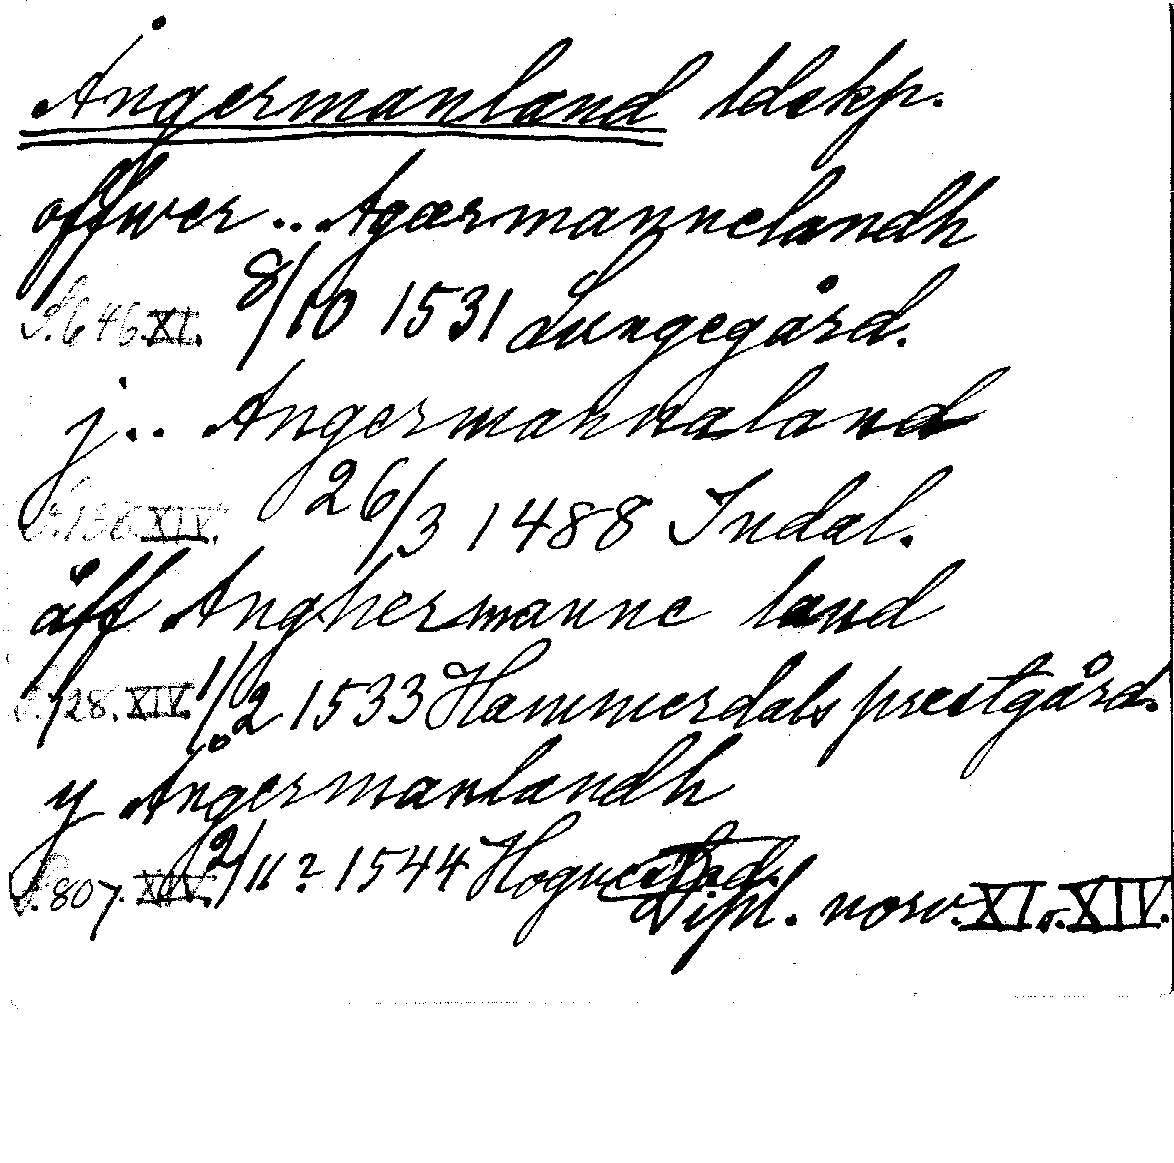 Ångermanland ldskp.
offwer .. Agærmannelandh
S. 646. XI. 8/10 1531 Lungegård.
j .. Angermannaland
XIV. 26/3 1488 Indal.
åff Anghermanne land
S. 728. XIV. 1/2 1533 Hammerdals prestgård.
y Ångermanlandh
S. 807. XIV. 2/11? 1544
Dipl. norv. XI o. XIV.